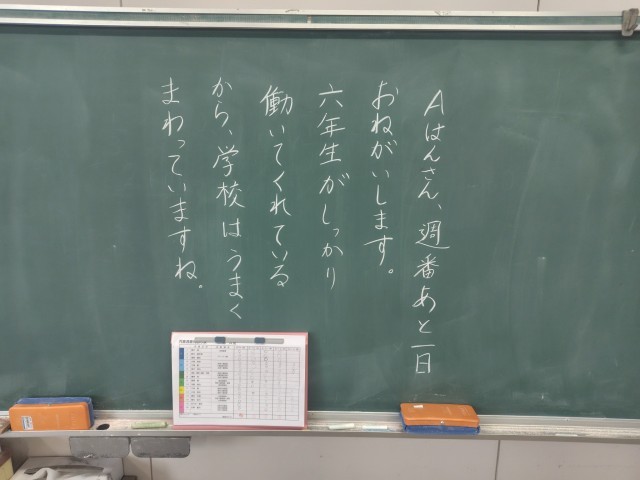 Aはんさん、週番あと一日
おねがいします。
六年生がしっかり
働いてくれている
から、学校はうまく
まわっていますね。